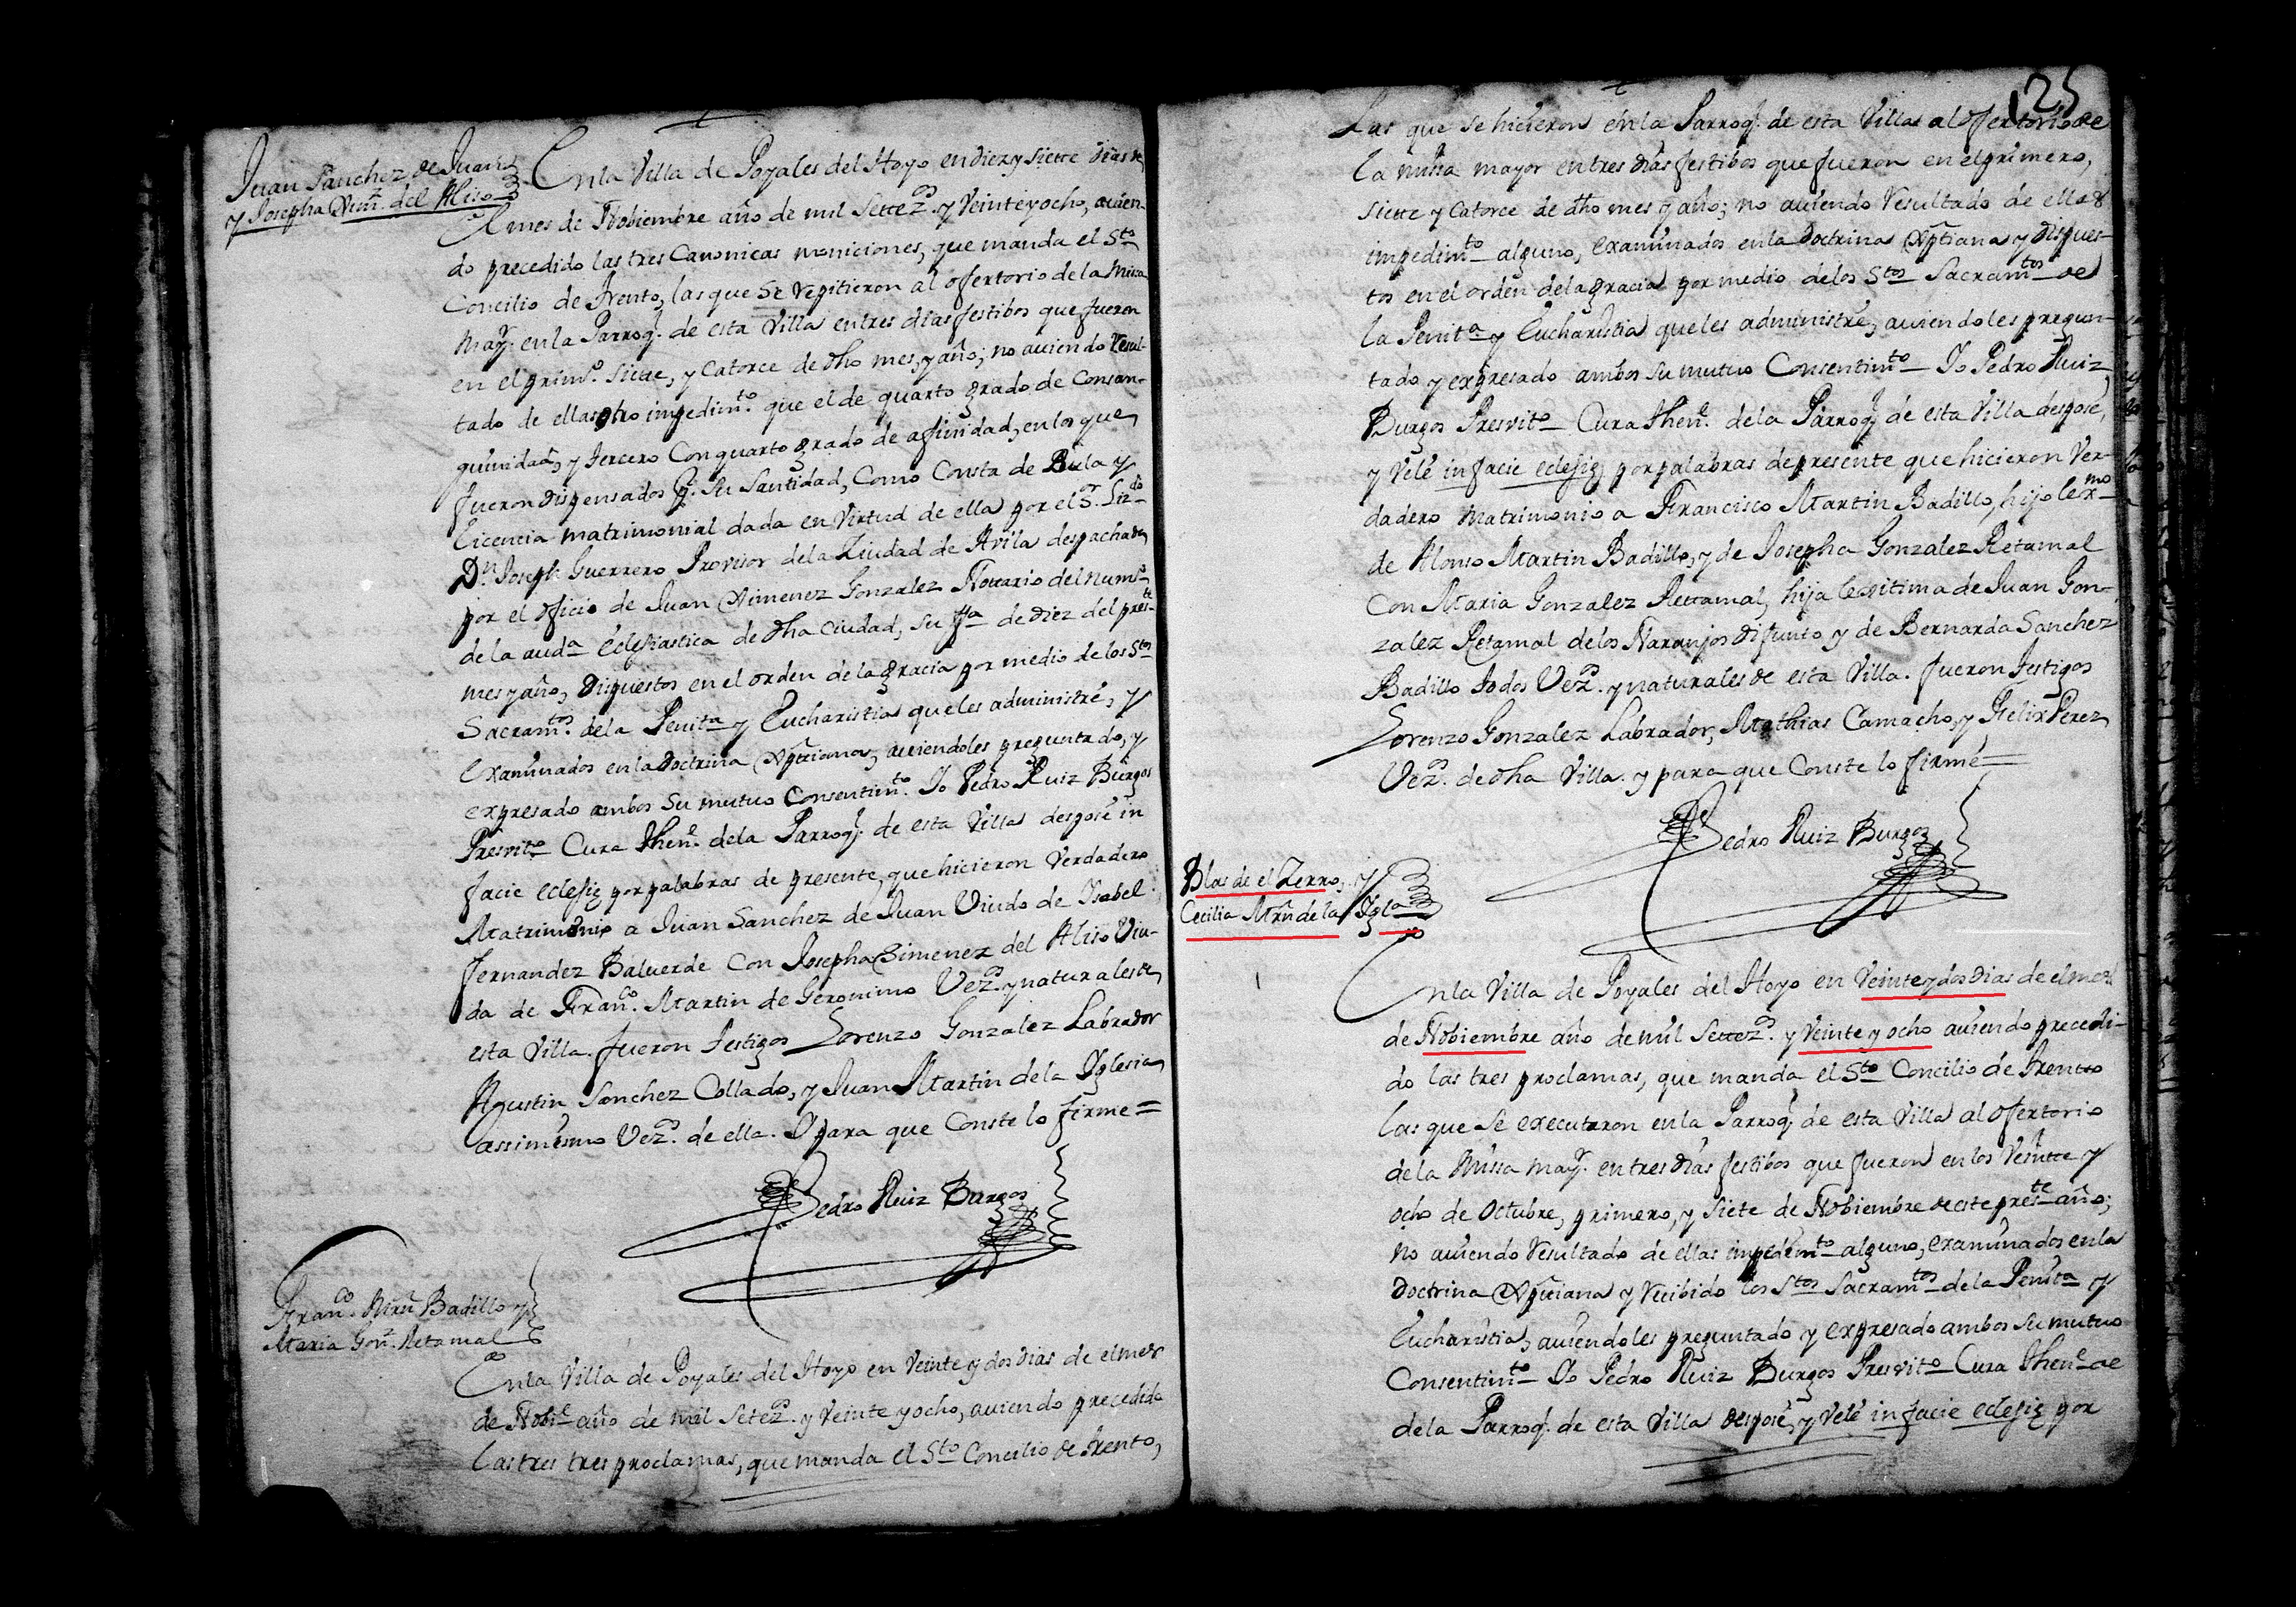 Juan Sanchez de Juan
y Josepha Xim.z del Aliso
Enla Villa de Poyales del Hoyo en diez y siette dias de
el mes de Nobiembre año de mil Settez.os y Veinte y ocho, auien-
do precedido las tres Canonicas moniciones, que manda el S.to
Concilio de Trento, las que se repitieron al ofertorio de la Missa
may.r en la Parroq.l de esta Villa en tres dias festibos que fueron
en el prim.o siette, y Catorce de dho mes, y año; no auiendo resul-
tado de ellas otro impedim.to que el de quarto grado de Consan-
guinidad, y tercero Con quarto grado de afinidad, en los que
fueron dispensados p.r su Santidad, Como Consta de Bula y
licencia matrimonial dada en Virtud de ella por el S.r Liz.do
D.n Joseph Guerrero Provisor dela Ziudad de Avila despachada
por el oficio de Juan Ximenez Gonzalez Nottario del num.o
de la aud.a eclesiastica de dha Ciudad, su fha de diez del pres.te
mes y año, dispuestos en el orden de la gracia por medio de los S.tos
Sacram.tos dela Penit.a y Eucharistia que les administré, y
examinados en la Doctrina Xptiana, auiendoles preguntado, y
expresado ambos su mutuo Consentim.to Yo Pedro Ruiz Burgos
Presvit.o Cura Then.e dela Parroq.l de esta Villa despose in
facie eclesię por palabras de presente, que hicieron Verdadero
Matrimonio a Juan Sanchez de Juan Viudo de Ysabel
fernandez Baluerde con Josepha Ximenez del Aliso Viu-
da de Fran.co Martin de Geronimo Vez.os y naturales de
esta Villa. fueron testigos Lorenzo Gonzalez Labrador
Agustin Sanchez Collado, y Juan Martin dela Yglesia
assimesmo Vez.os de ella. Y para que Conste lo firme =
Pedro Ruiz Burgos
Fran.co Mrn Badillo y
Maria Gon.z Retamal
Enla Villa de Poyales del Hoyo en Veinte y dos dias de el mes
de Nobi.e año de mil Setez.os y Veinte y ocho, auiendo precedido
las tres tres proclamas, que manda el S.to Concilio de Trento,
125
Las que se hicieron en la Parroq.l de esta Villa al ofertorio de
la missa mayor en tres dias festibos que fueron en el primero,
siette y Catorce de dho mes y año; no auiendo resultado de ellas
impedim.to alguno, examinados en la Doctrina Xptiana y dispues-
tos en el orden dela gracia por medio delos S.tos Sacram.tos de
la Penit.a y Eucharistia que les administré, auiendoles pregun-
tado y expresado ambos su mutuo Consentim.to Yo Pedro Ruiz
Burgos Presvit.o Cura Then.e dela Parroq.l de esta Villa despose,
y Velé in facie eclesię por palabras de presente que hicieron Ver-
dadero matrimonio a Francisco Martin Badillo, hijo lex.mo
de Alonso Martin Badillo, y de Josepha Gonzalez Retamal
Con Maria Gonzalez Rettamal, hija legitima de Juan Gon-
zalez Retamal delos Naranjos difunto y de Bernarda Sanchez
Badillo todos Vez.os y naturales de esta Villa. fueron testigos
Lorenzo Gonzalez Labrador, Mathias Camacho, y Felix Perez
Vez.os de dha Villa. y para que Conste lo firmé =
Pedro Ruiz Burgos
Blas de el Zerro, y
Cecilia Mrn de la Ygla
Enla Villa de Poyales del Hoyo en Veinte y dos dias de el mes
de Nobiembre año de mil Settez.os y Veinte y ocho auiendo precedi-
do las tres proclamas, que manda el S.to Concilio de Trento
las que se executaron en la Parroq.l de esta Villa al ofertorio
de la Missa may.r en tres dias festibos que fueron en los Veintte y
ocho de Octubre, primero, y siete de Nobiembre de este pres.te año;
no auiendo resultado de ellas impedim.to alguno, examinados en la
doctrina Xptiana y recibido los S.tos Sacram.tos de la Penit.a y
Eucharistia, auiendoles preguntado y expresado ambos su mutuo
Consentim.to Yo Pedro Ruiz Burgos Presvit.o Cura Then.e de
dela Parroq.l de esta Villa desposé, y Velé in facie eclesię por